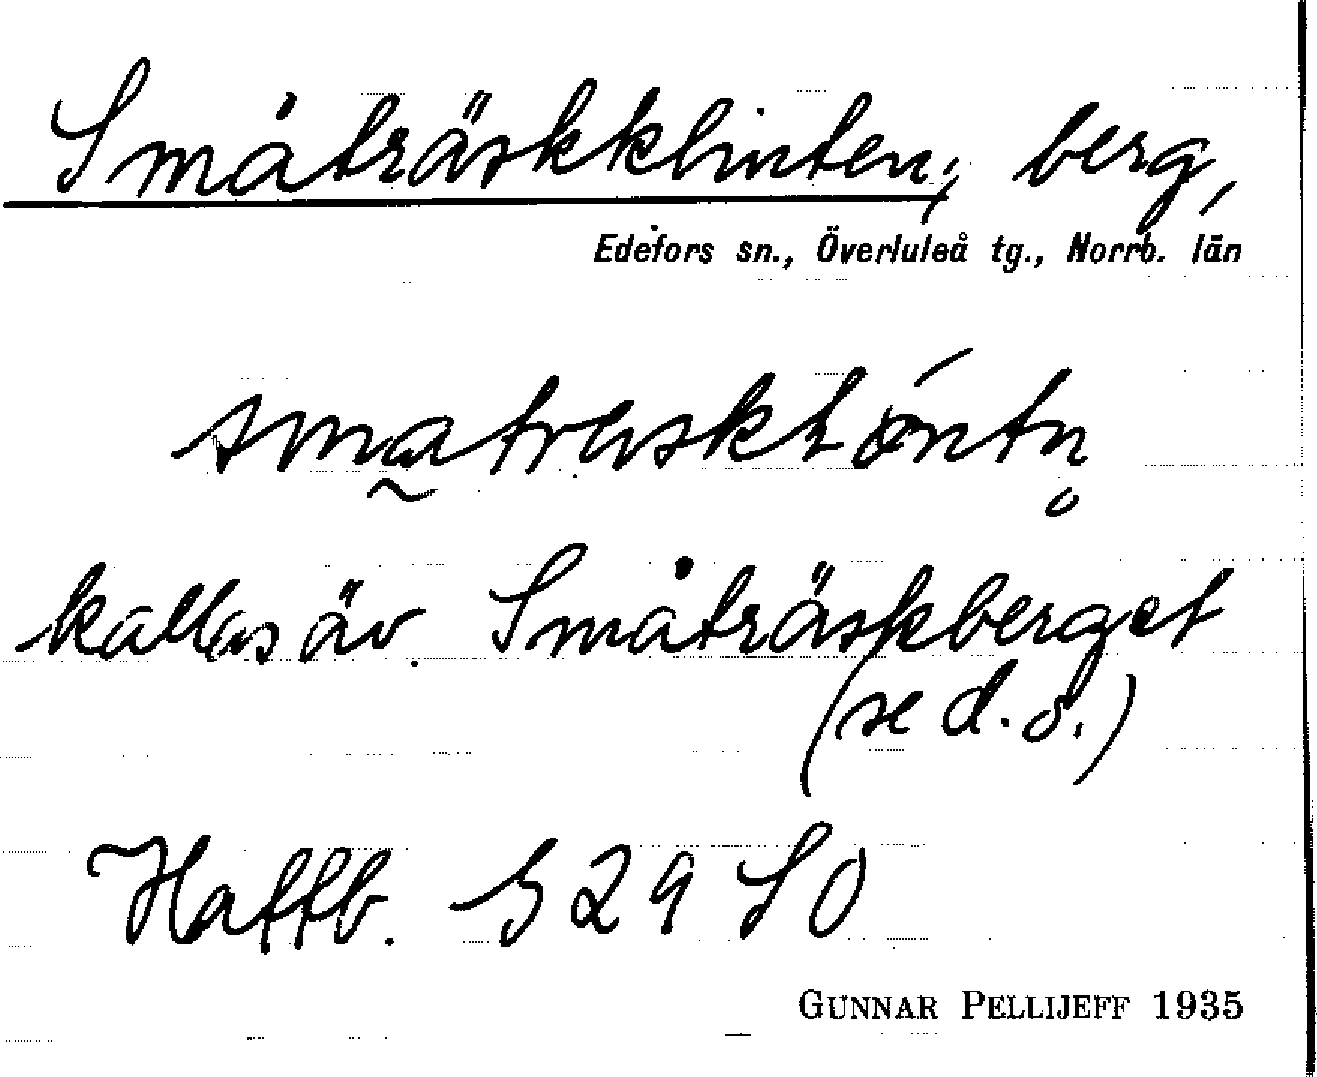 Småträskklinten, berg,
Edefors sn., Överluleå tg., Norrb. län
kallas äv. Småträskberget
(se d. o.)
Haffb. 529 SO
GUNNAR PELLIJEFF 1935